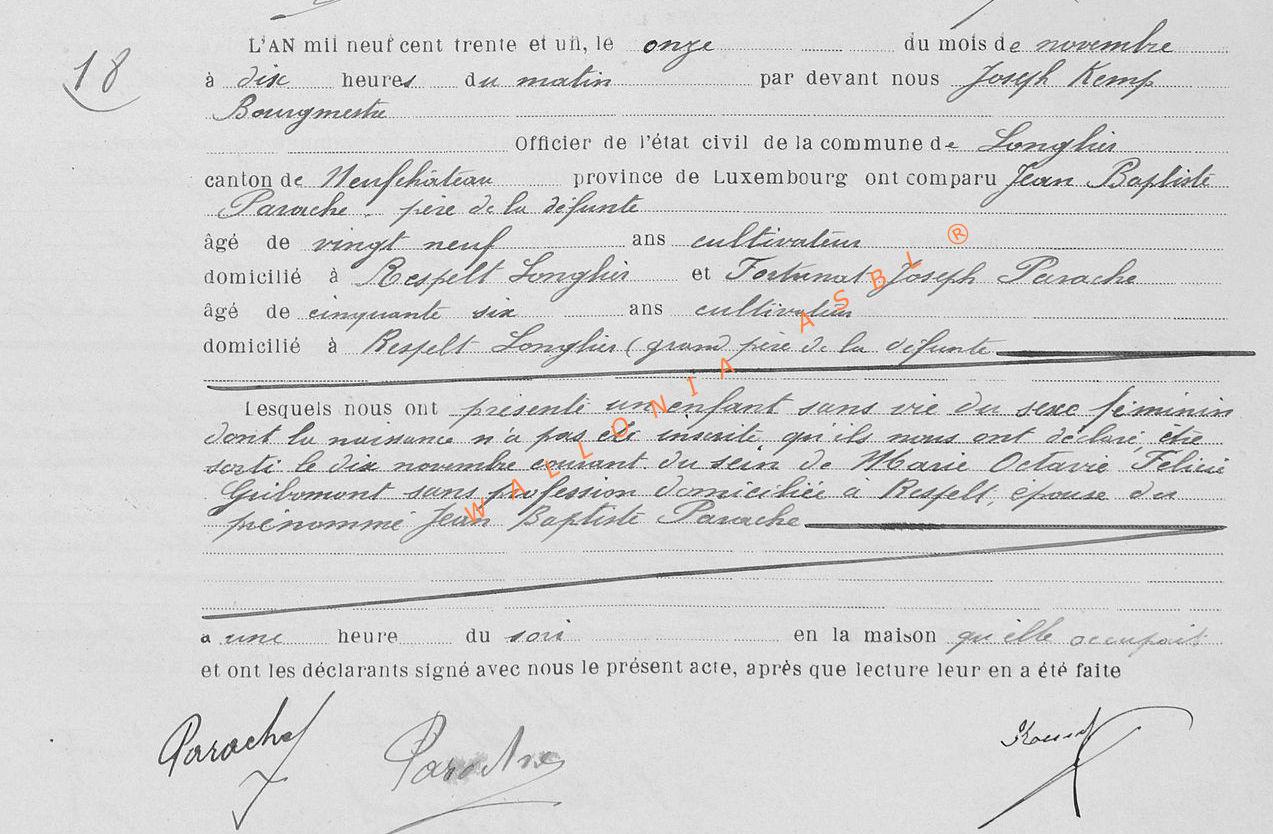 18
L'AN mil neuf cent trente et un, le onze du mois de novembre
à dix heures du matin par devant nous Joseph Kemp
Bourgmestre
Officier de l'état civil de la commune de Longlier
canton de Neufchâteau province de Luxembourg ont comparu Jean Baptiste
Parache père de la défunte
âgé de vingt neuf ans cultivateur
domicilié à Respelt Longlier et Fortunat Joseph Parache
âgé de cinquante six ans cultivateur
domicilié à Respelt Longlier (grand père de la défunte
Lesquels nous ont présenté un enfant sans vie du sexe féminin
dont la naissance n'a pas été inscrite, qu'ils nous ont déclaré, être
sorti le dix novembre courant du sein de Marie Octavie Félicie
Gribomont sans profession domiciliée à Respelt, épouse du
prénommé Jean Baptiste Parache
à une heure du soir en la maison qu'elle occupait
et ont les déclarants signé avec nous le présent acte, après que lecture leur en a été faite
Parache J Parache Kemp
WALLONIA ASBL ®